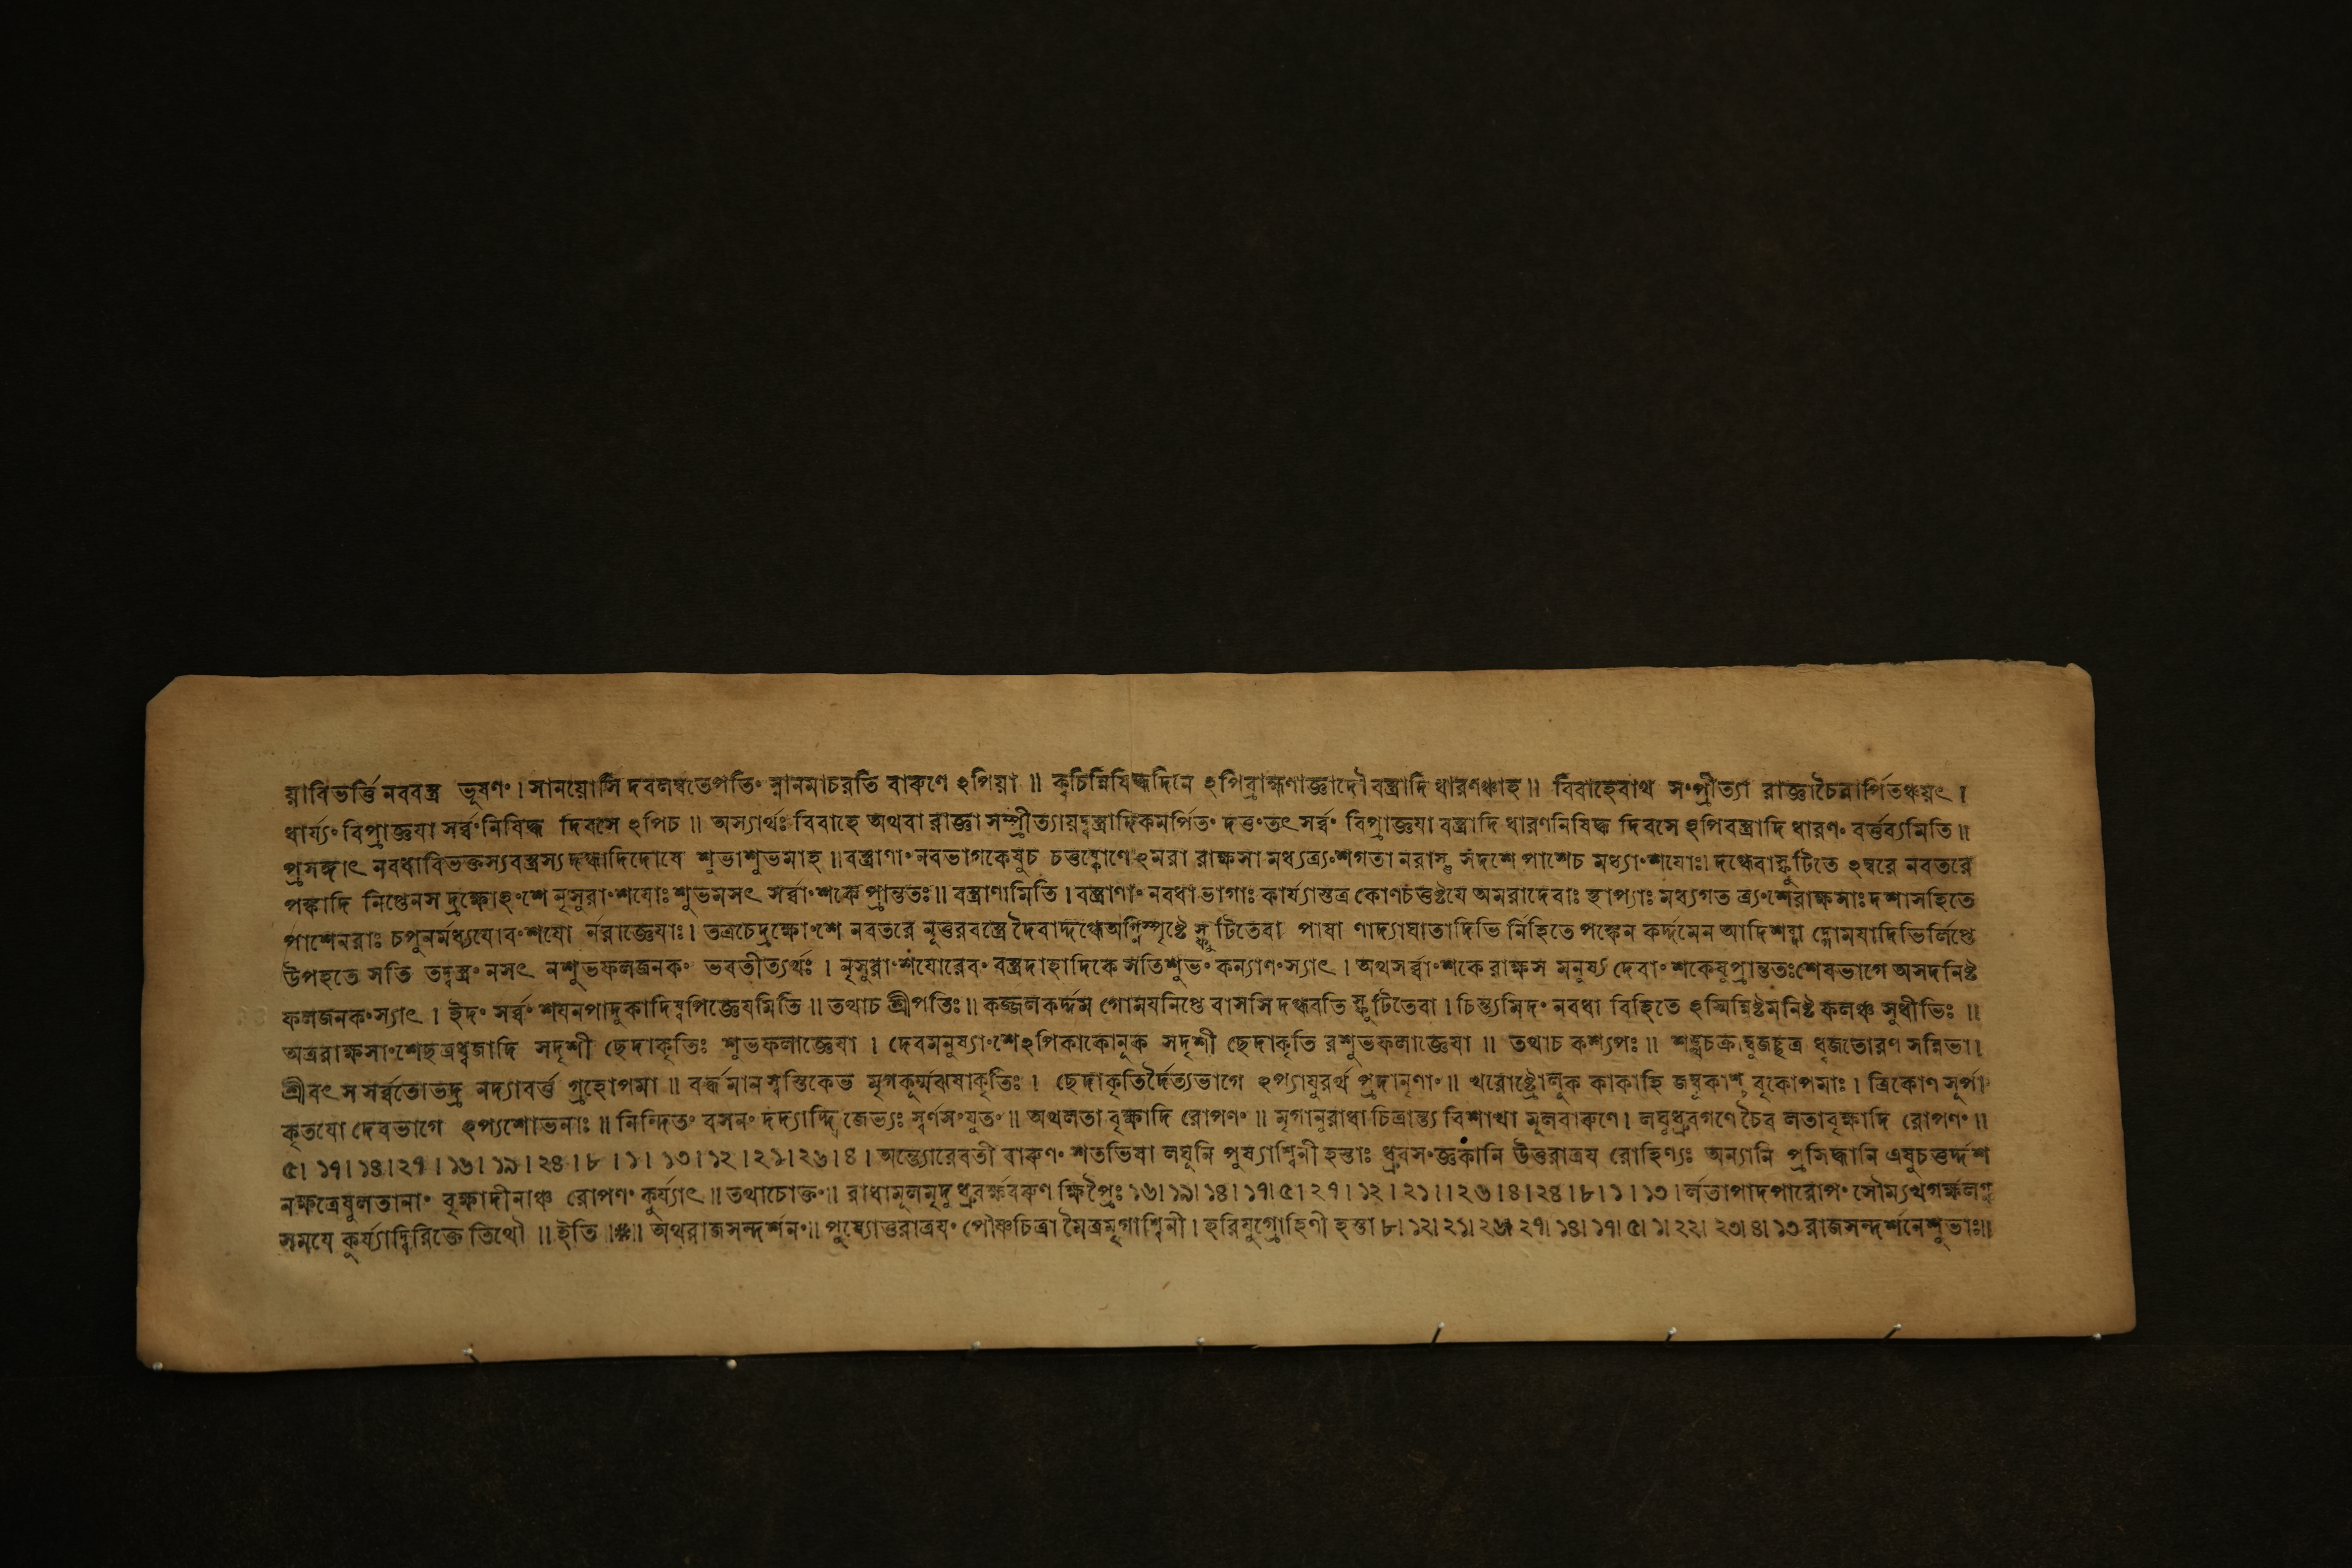 য়াবিভর্ত্তি নববস্ত্র ভূষণং । সানয়োসি দবলম্বতেপতিং স্নানমাচরতি বারুণে ঽপিয়া ॥ ক্বচিন্নিষিদ্ধদিনে ঽপিব্রাহ্মণাজ্ঞাদৌ বস্ত্রাদি ধারণঞ্চাহ ॥ বিবাহেবাথ সংপ্রীত্যা রাজ্ঞাচৈবার্পিতঞ্চয়ৎ ।
ধার্য্যং বিপ্রাজ্ঞযা সর্ব্বংনিষিদ্ধ দিবসে ঽপিচ ॥ অস্যার্থঃ বিবাহে অথবা রাজ্ঞা সম্প্রীত্যায়দ্বস্ত্রাদিকমর্পিতং দত্তংতৎ সর্ব্বং বিপ্রাজ্ঞযা বস্ত্রাদি ধারণনিষিদ্ধ দিবসে ঽপিবস্ত্রাদি ধারণং বর্ত্তব্যমিতি ॥
প্রসঙ্গাৎ নবধাবিভক্তস্যবস্ত্রস্য দগ্ধাদিদোষে শুভাশুভমাহ ॥ বস্ত্রাণাং নবভাগকেষুচ চতুষ্কোণেঽমরা রাক্ষসা মধ্যত্র্যংশগতা নরাস্তু সদশে পাশেচ মধ্যাংশযোঃ। দগ্ধেবাস্ফুটিতে ঽম্বরে নবতরে
পঙ্কাদি লিপ্তেনস দ্রক্ষোঽংশে নৃসুরাংশযোঃ শুভমসৎ সর্ব্বাংশকে প্রান্ততঃ ॥ বস্ত্রাণামিতি । বস্ত্রাণাং নবধা ভাগাঃ কার্য্যাস্তত্র কোণচতুষ্টযে অমরাদেবাঃ স্থাপ্যাঃ মধ্যগত ত্র্যংশেরাক্ষসাঃ দশাসহিতে
পাশেনরাঃ চপুনর্মধ্যযোবংশযো র্নরাজ্ঞেযাঃ । তত্রচেদ্রক্ষোংশে নবতরে নূত্তরবস্ত্রে দৈবাদ্দগ্ধেঅগ্নিস্পৃষ্টে স্ফুটিতেবা পাষা ণাদ্যাঘাতাদিভি র্নিহিতে পঙ্কেন কর্দ্দমেন আদিশব্দা দ্গোমযাদিভির্লিপ্তে
উপহতে সতি তদ্বস্ত্রং নসৎ নশুভফলজনকং ভবতীত্যর্থঃ । নৃসুরাংশযোরেবং বস্ত্রদাহাদিকে সতিশুভং কল্যাণংস্যাৎ । অথসর্ব্বাংশকে রাক্ষস মনুষ্য দেবাংশকেষুপ্রান্ততঃশেষভাগে অসদনিষ্ট
ফলজনকংস্যাৎ । ইদং সর্ব্বং শযনপাদুকাদিষ্বপিজ্ঞেযমিতি ॥ তথাচ শ্রীপতিঃ ॥ কজ্জলকর্দ্দম গোমযলিপ্তে বাসসি দগ্ধবতি স্ফুটিতেবা । চিন্ত্যমিদং নবধা বিহিতে ঽস্মিন্নিষ্টমনিষ্ট ফলঞ্চ সুধীভিঃ ॥
অত্ররাক্ষসাংশেছত্রধ্বজাদি সদৃশী ছেদাকৃতিঃ শুভফলাজ্ঞেযা । দেবমনুষ্যাংশেঽপিকাকোলূক সদৃশী ছেদাকৃতি রশুভফলাজ্ঞেযা ॥ তথাচ কশ্যপঃ ॥ শঙ্খচক্রাম্বুজছত্র ধ্বজতোরণ সন্নিভা ।
শ্রীবৎ স সর্ব্বতোভদ্র নদ্যাবর্ত্ত গৃহোপমা ॥ বর্দ্ধমান স্বস্তিকেভ মৃগকূর্ম্মঝষাকৃতিঃ । ছেদাকৃতির্দৈত্যভাগে ঽপ্যাযুরর্থ প্রদানৃণাং ॥ খরোষ্ট্রোলূক কাকাহি জম্বূকাশ্ব বৃকোপমাঃ । ত্রিকোণ সূর্পা
কৃতযো দেবভাগে ঽপ্যশোভনাঃ ॥ নিন্দিতং বসনং দদ্যাদ্দ্বিজেভ্যঃ স্বর্ণসংযুতং ॥ অথলতা বৃক্ষাদি রোপণং ॥ মৃগানুরাধা চিত্রান্ত্য বিশাখা মূলবারুণে । লঘুধ্রুবগণে চৈব লতাবৃক্ষাদি রোপণং ॥
৫। ১৭। ১৪। ২৭ । ১৬। ১৯। ২৪ । ৮ । ১ । ১৩। ১২ । ২১। ২৬। ৪ । অন্ত্যোরেবতী বারুণং শতভিষা লঘুনি পুষ্যাশ্বিনী হস্তাঃ ধ্রুবসংজ্ঞকানি উত্তরাত্রয রোহিণ্যঃ অন্যানি প্রসিদ্ধানি এষুচতুর্দ্দশ
নক্ষত্রেষুলতানাং বৃক্ষাদীনাঞ্চ রোপণং কুর্য্যাৎ ॥ তথাচোক্তং ॥ রাধামূলমৃদু ধ্রুবর্ক্ষবরুণ ক্ষিপ্রৈঃ ১৬। ১৯। ১৪। ১৭। ৫। ২৭ । ১২ । ২১ ।। ২৬ । ৪। ২৪। ৮। ১ । ১৩। র্লতাপাদপারোপং সৌম্যখগর্ক্ষলগ্ন
সমযে কুর্য্যাদ্বিরিক্তে তিথৌ ॥ ইতি ॥ ॥ অথরাজসন্দর্শনং ॥ পুষ্যোত্তরাত্রযং পৌষ্ণচিত্রা মৈত্রমৃগাশ্বিনী । হরিযুগ্রোহিণী হস্তা ৮। ১২। ২১। ২৬। ২৭। ১৪। ১৭। ৫। ১। ২২। ২৩। ৪। ১৩ রাজসন্দর্শনেশুভাঃ ॥